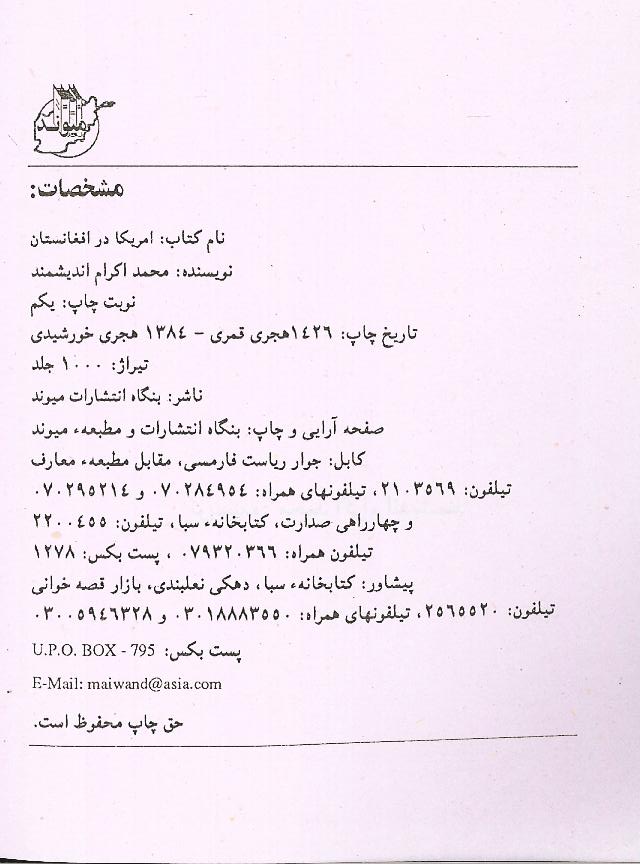 میوند
مشخصات:
نام کتاب: امریکا در افغانستان
نویسنده: محمد اکرام اندیشمند
نوبت چاپ: یکم
تاریخ چاپ: ١٤٢٦هجری قمری – ١٣٨٤ هجری خورشیدی
تیراژ: ١٠٠٠ جلد
ناشر: بنگاه انتشارات میوند
صفحه آرایی و چاپ: بنگاه انتشارات و مطبعهء میوند
کابل: جوار ریاست فارمسی، مقابل مطبعهء معارف
تیلفون: ٢١٠٣٥٦٩، تیلفونهای همراه: ٠٧٠٢٨٤٩٥٤ و ٠٧٠٢٩٥٢١٤
و چهارراهی صدارت، کتابخانهء سبا، تیلفون: ٢٢٠٠٤٥٥
تیلفون همراه: ٠٧٩٣٢٠٣٦٦ ، پست بکس: ١٢٧٨
پیشاور: کتابخانهء سبا، دهکی نعلبندی، بازار قصه خوانی
تیلفون: ٢٥٦٥٥٢٠، تیلفونهای همراه: ٠٣٠١٨٨٨٣٥٥٠ و ٠٣٠٠٥٩٤٦٣٢٨
پست بکس: U.P.O. BOX - 795
E-Mail: maiwand@asia.com
حق چاپ محفوظ است.